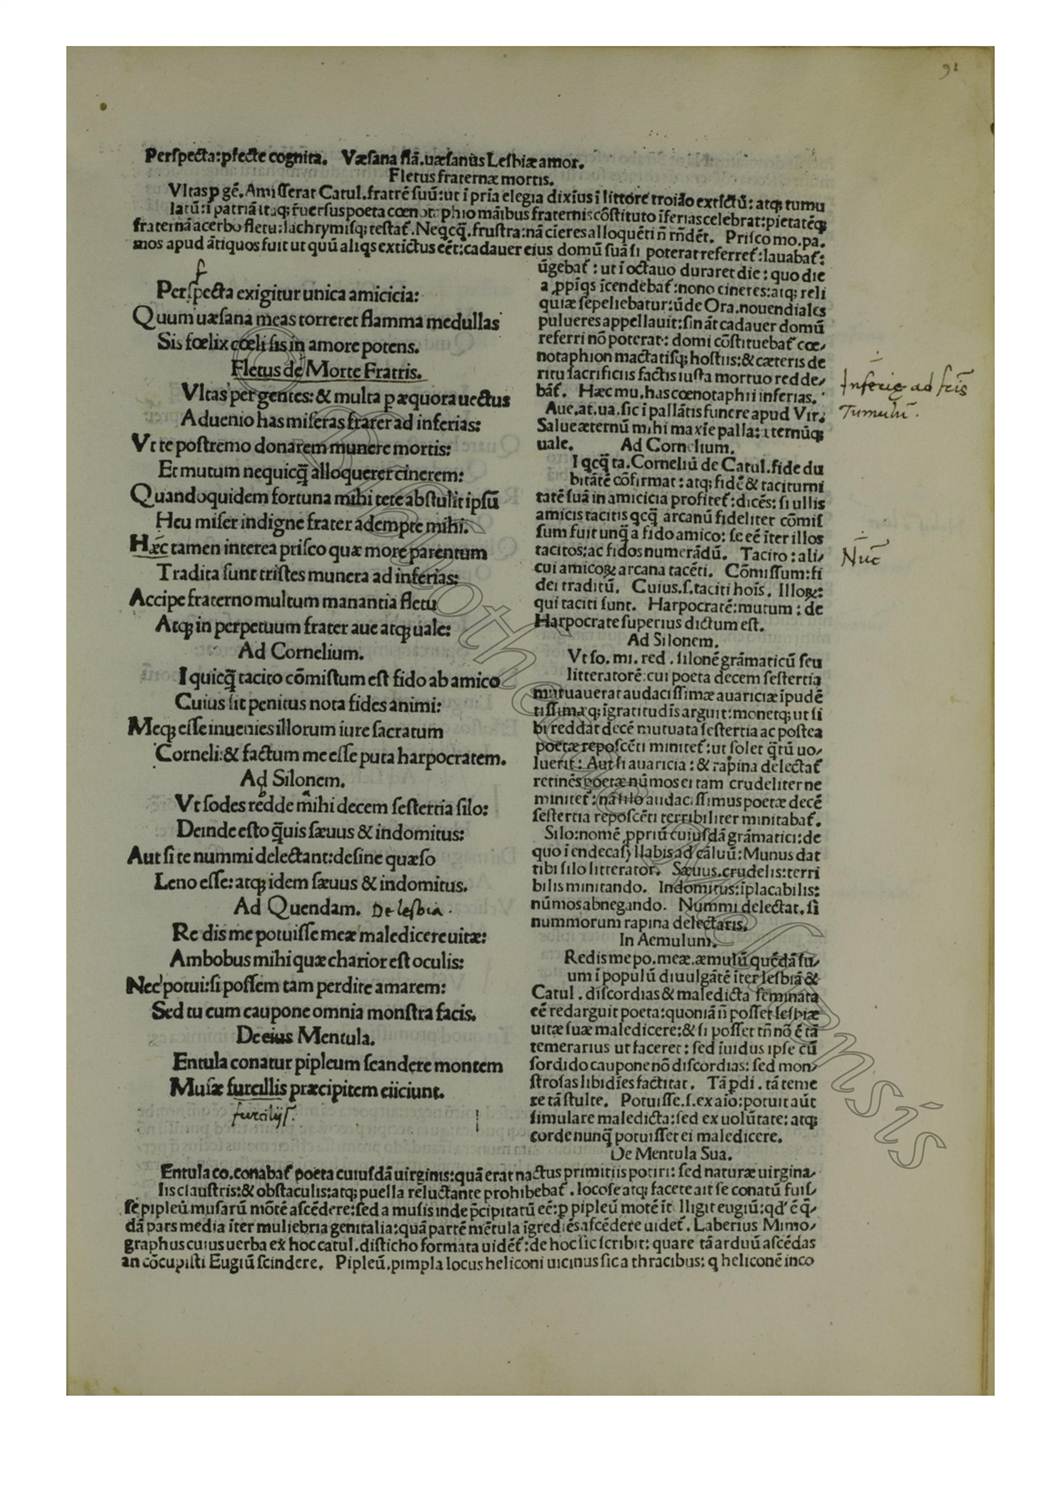 91
Perſpecta:pfecte cognita. Væſana flā.uæſanus Leſbiæ amor.
Fletus fraternæ mortis.
Vltas p gē. Amiſſerat Catul.fratrē ſuū:ut ī pria elegia diximus ī
laturi patriā itaq; poeta fraternis
fraternā acerbo fletu:lachrymiſq; teſtat. Neqcq. fruſtra: Priſco mo.pa.
mos apud ātiquos fuit ut quū aliqs extictus eēt:cadauer eius domū ſuā ſi poterat referret:lauabat:
f
Perſpecta exigitur unica amicicia:
Quum uæſana meas torreret flamma medullas
Sis fœlix cœli ſis in amore potens.
Fletus de Morte Fratris.
Vltas per gentes:& multa p æquora uectus
Aduenio has miſeras frater ad inferias:
Vt te poſtremo donarem munere mortis:
Et mutum nequicq̄ alloquerer cinerem:
Quandoquidem fortuna mihi tete abſtulit ipſū
Heu miſer indigne frater adempte mihi.
Hæc tamen interea priſco quæ more parentum
Tradita ſunt triſtes munera ad inferias:
Accipe fraterno multum manantia fletu
Atq; in perpetuum frater aue atq; uale:
Ad Cornelium.
I quicq̄ tacito cōmiſtum eſt fido ab amico
Cuius ſit penitus nota fides animi:
Meq; eſſe inuenies illorum iure ſacratum
Corneli:& factum me eſſe puta harpocratem.
Ad Silonem.
Vt ſodes redde mihi decem ſeſtertia ſilo:
Deinde eſto q̄uis ſæuus & indomitus:
Aut ſi te nummi delectant:deſine quæſo
Leno eſſe:atq; idem ſæuus & indomitus.
Ad Quendam. De leſbia.
Re dis me potuiſſe meæ maledicere uitæ:
Ambobus mihi quæ charior eſt oculis:
Nec potui:ſi poſſem tam perdite amarem:
Sed tu cum caupone omnia monſtra facis.
De eius Mentula.
Entula conatur pipleum ſcandere montem
Muſæ furcillis præcipitem eiiciunt.
furcilijſ.
ūgebat: ut ī octauo duraret die: quo die
a īcendebat: nono cineres: atq; reli
quiæ ſepeliebatur:ūde Ora.nouendiales
pulueres appellauit:ſin āt cadauer domū
referri nō poterat: domi cōſtituebat cœ
notaphion mactatiſq; hoſtiis:& cæteris de
ritu ſacrificiis factis iuſta mortuo redde
bāt. Hæc mu.has cœnotaphii inferias.
Aue.at.ua.ſic ī pallātis funere apud Vir.
Salue æternū mihi maxīe palla: æternūq;
uale. Ad Cornelium.
I qcq̄ ta.Corneliū de Catul.fide du
bitātē cōfirmat: atq; fidē & taciturni
tatē ſuā in amicicia profitet: dicēs: ſi ullis
amicis tacitis qcq̄ arcanū fideliter cōmiſ
ſum fuit unq̄ a fido amico: ſe eē īter illos
tacitos:ac fidos numerādū. Tacito: ali
cui amicoꝝ arcana tacēti. Cōmiſſum:fi
dei traditū. Cuius.ſ.taciti hoīs. Illoꝝ:
qui taciti ſunt. Harpocratē:mutum: de
Harpocrate ſuperius dictum eſt.
Ad Silonem.
Vt ſo. mi. red. ſilonē grāmaticū ſeu
litteratorē: cui poeta decem ſeſtertia
mutuauerat audaciſſimæ auariciæ īpudē
tiſſimæq; īgratitudīs arguit: monetq; ut ſi
bi reddat decē mutuata ſeſtertia ac poſtea
poetæ repoſcēti minitet: ut ſolet q̄tū uo
luerit: Aut ſi auaricia: & rapina delectat
retinēs poetæ nūmos ei tam crudeliter ne
minitet: nā ſilo audaciſſimus poetæ decē
ſeſtertia repoſcēti terribiliter minitabat.
Silo:nomē ppriū cuiuſdā grāmatici:de
quo ī endecaſyllabis ad caluū: Munus dat
tibi ſilo litterator. Sæuus.crudelis:terri
bilis minitando. Indomitus:īplacabilis:
nūmos abnegando. Nummi delectat.ſi
nummorum rapina delectaris.
In Aemulum.
Redis me po.meæ.æmulū quēdā ſu
um ī populū diuulgātē īter leſbiā &
Catul. diſcordias & maledicta ſeminata
eē redarguit poeta:quoniā ñ poſſet leſbiæ
uitæ ſuæ maledicere:& ſi poſſet tñ nō ē tā
temerarius ut faceret: ſed īuidus ipſe cū
ſordido caupone nō diſcordias: ſed mon
ſtroſas libidīes factitat. Tā pdi. tā teme
re tā ſtulte. Potuiſſe.ſ.ex aīo: potuit aūt
ſimulare maledicta:ſed ex uolūtate: atq;
corde nunq̄ potuiſſet ei maledicere.
De Mentula Sua.
Inferię ad
Tumulū.
Nūc
Entula co.conabat poeta cuiuſdā uirginis:quā erat nactus primitiis potiri: ſed naturæ uirgina
lis clauſtris:& obſtaculis:atq; puella reluctante prohibebat. Iocoſe atq; facete ait ſe conatū fuiſ
ſe pipleū muſarū mōtē aſcēdere:ſed a muſis inde p̄cipitatū eē:p pipleū motē īt lligit eugiū:qd ē q̄
dā pars media īter muliebria genitalia:quā partē mētula īgrediēs aſcēdere uidet. Laberius Mimo
graphus cuius uerba ex hoc catul.diſticho formata uidēt: de hoc ſic ſcribit: quare tā arduū aſcēdas
an cōcupiſti Eugiū ſcindere. Pipleū.pimpla locus heliconi uicinus ſic a thracibus: q heliconē inco